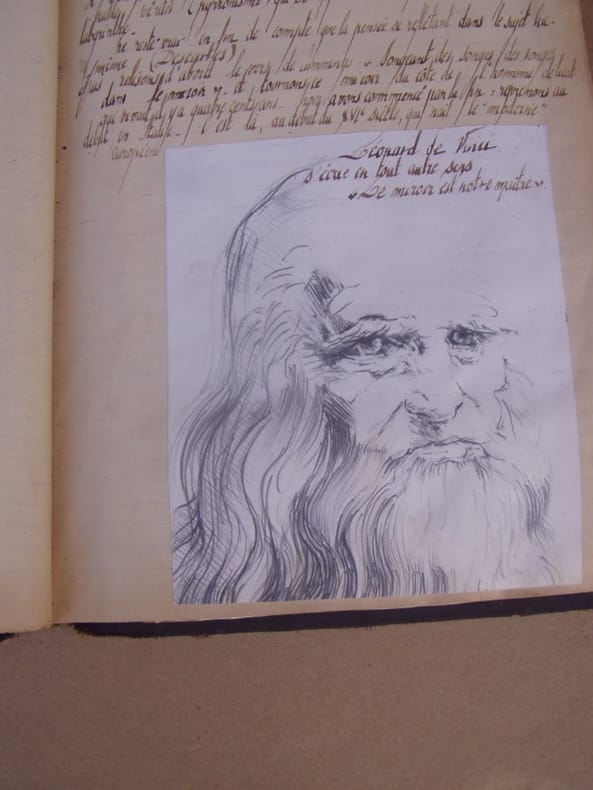 vérités (Pyrrhonisme) qui
labyrinthe.
ne reste vrai en fin de compte que la pensée se reflétant dans le sujet lui-
même (Descartes)
relisons d'abord le vers de Cummings : « Songeant des songes des songes
dans le miroir » et tournons ce miroir du côté de l'homme debout
qui voulut, il y a quatre cents ans. Nous avons commencé par la fin : reprenons au
début en Italie. C'est là, au début du XVIe siècle, qui naît le "moderne"
européen
Léonard de Vinci
s'écrie en tout autre sens
« Le miroir est notre maître ».